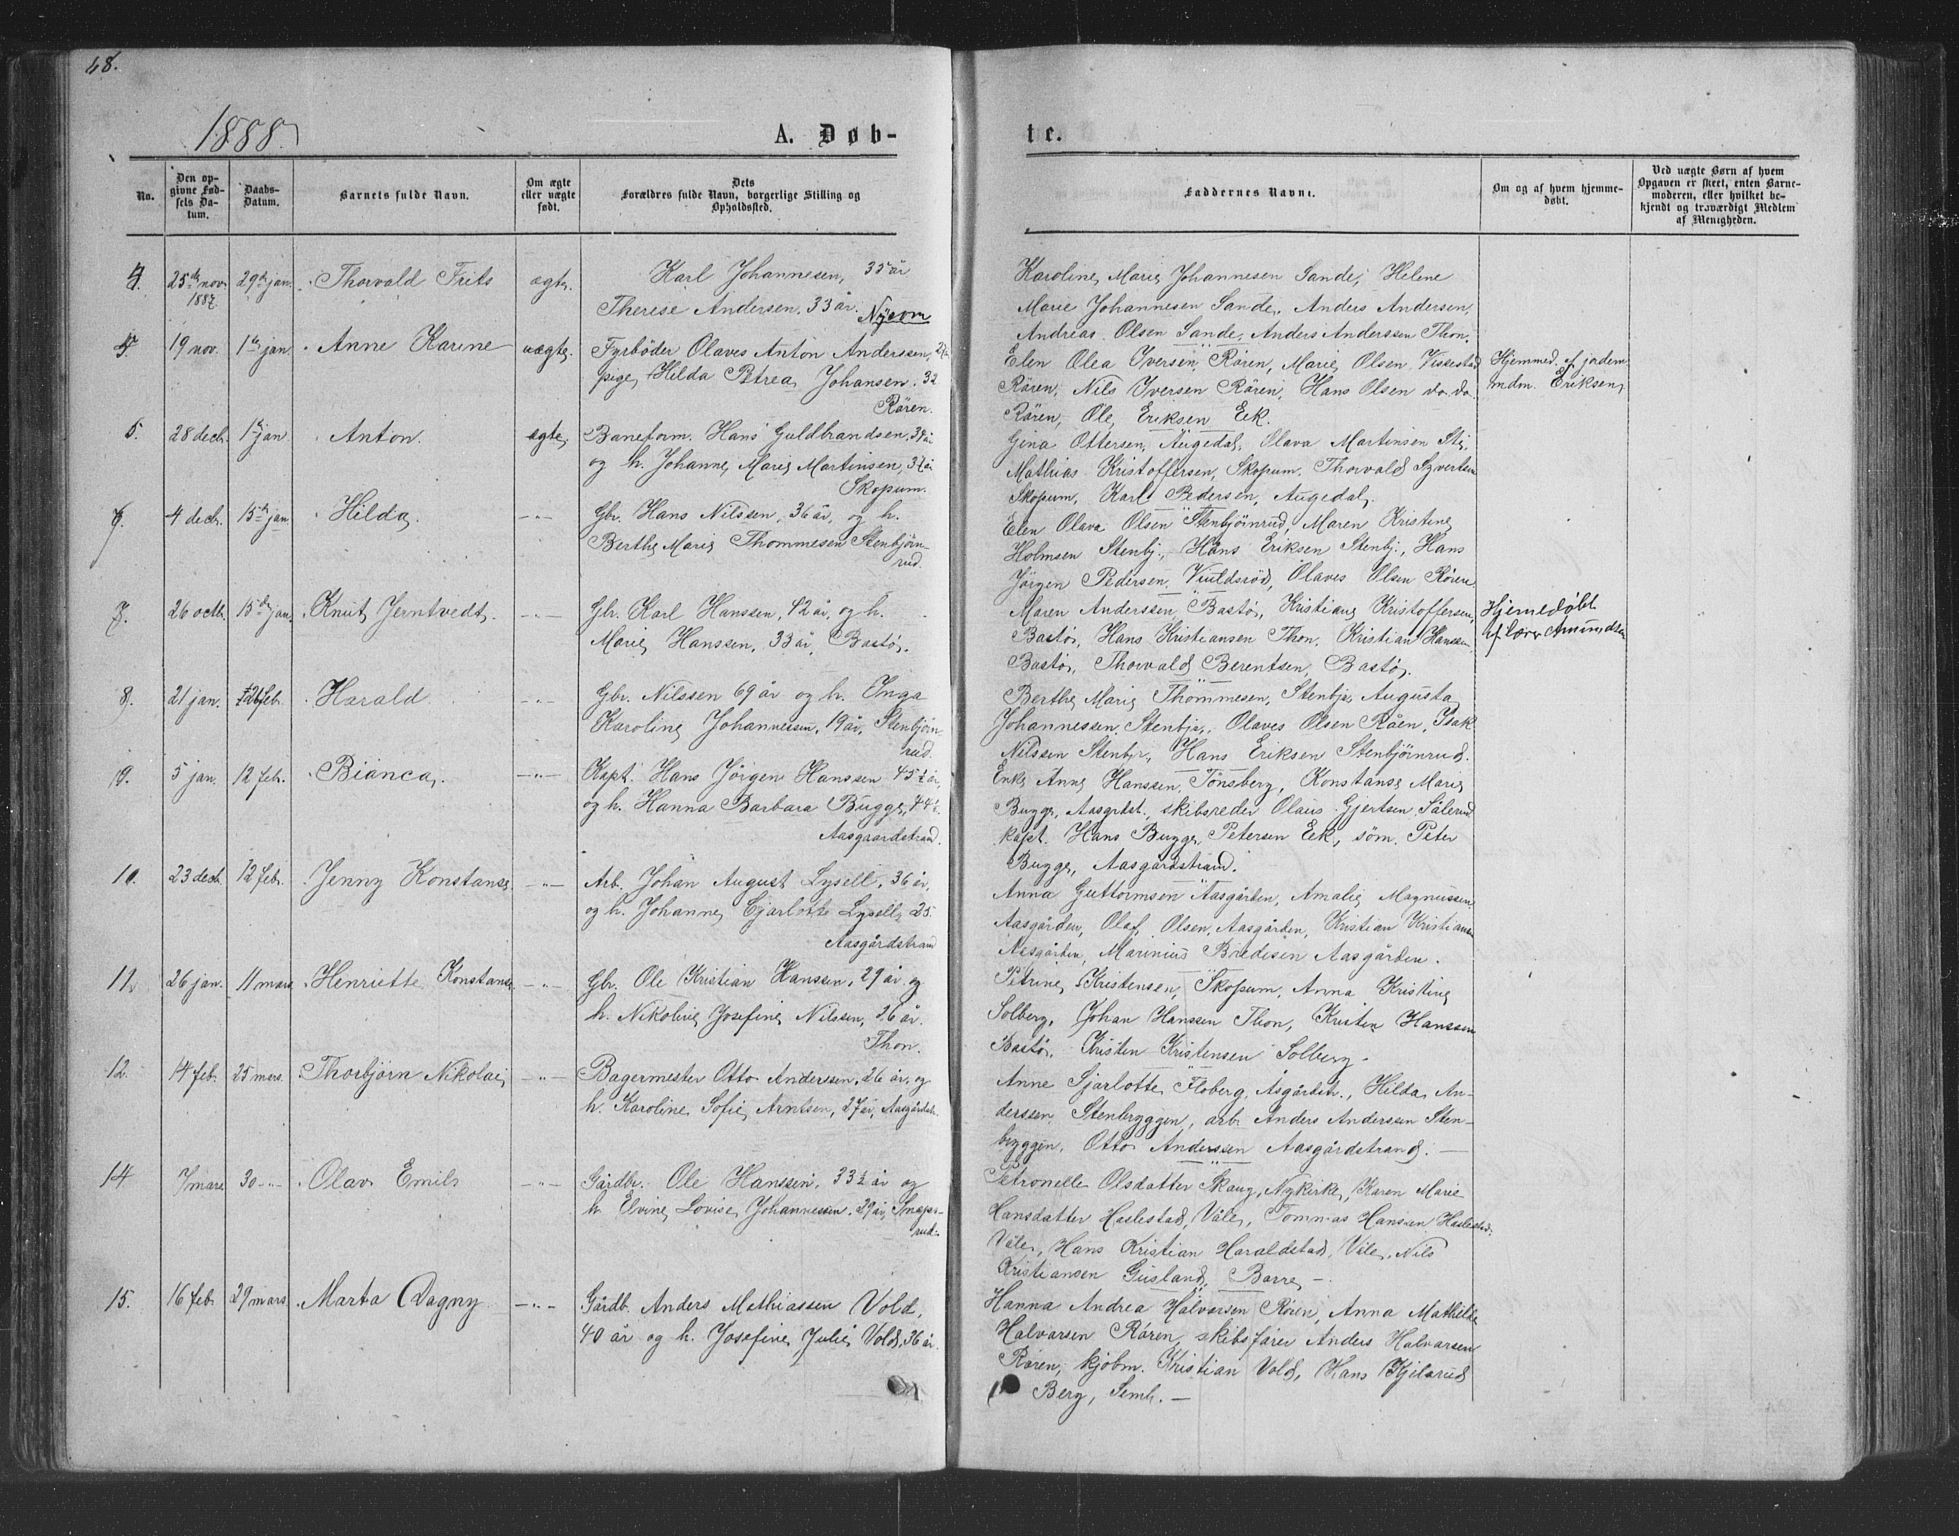 48.
1888.
A. Døb-
te.
No.
Den op-
givne Fød-
sels Da-
tum.
Daabs-
Datum.
Barnets fulde Navn.
Om ægte
eller uægte
født.
Dets
Forældres fulde Navn, borgerlige Stilling og
Opholdssted.
Faddernes Navne.
Om og af hvem hjemme-
døbt.
Ved uægte Børn af hvem
Opgaven er skeet, enten Barne-
moderen, eller hvilket be-
kjendt og troværdigt Medlem
af Menigheden.
4. 25de nov. 1887 29de jan. Thorvald Frits ægte.
Karl Johannesen, 35 år
Therese Andersen, 33 år.
Nyrom
Karoline Marie Johannesen Sande, Helene
Marie Johannesen Sande, Anders Andersen,
Andreas Olsen Sande, Anders Anderssen Thon.
5. 19 nov. 1te jan. Anne Karine uægte.
Fyrbøder Olaves Anton Andersen,
pige Hilda Petrea Johansen, 32
Rören.
Elen Olea Iversen Røren, Marie Olsen Vissestad
Rören, Nils Iversen Rören, Hans Olsen do. do.
Rören, Ole Eriksen Eek.
Hjemmed. af jordem.
mdm. Eriksen
5. 28 decb. 1te jan. Anton. ægte
Baneform. Hans Guldbrandsen, 39 år
og h. Johanne Marie Martinsen, 37 år
Skopum.
Gina Ottersen, Augedal, Olava Martinsen
Mathias Kristoffersen, Skopum, Thorvald Syvertsen
Skopum, Karl Pedersen, Augedal.
6. 4 decb. 15de jan. Hilda. -"-
Gbr. Hans Nilssen, 36 år, og h.
Berthe Marie Thommesen Stenbjørn-
rud.
Elen Olava Olsen Stenbjörnrud, Maren Kristine
Holmsen Stenbj., Hans Eriksen Stenbj., Hans
Jörgen Pedersen, Olaves Olsen Rören
7. 26 octb. 15de jan. Knut Jerntvedt. -"-
Gbr. Karl Hanssen, 42 år, og h.
Marie Hanssen, 33 år, Bastö.
Maren Anderssen Bastö, Kristiane Kristoffersen,
Bastö, Hans Kristiansen Thon, Kristian Hanssen
Bastö, Thorvald Berentsen, Bastö.
Hjemedøbt
af Lærer Amundsen
8. 21 jan. feb. Harald -"-
Gbr. Nilssen 69 år og h. Inga
Karoline Johannessen, 19 år, Stenbjörn
rud.
Berthe Marie Thommesen, Stenbjr, Augusta
Johannessen, Stenbjr, Olaves Olsen Råen, Isak
Nilssen Stenbjr, Hans Eriksen Stenbjörnrud.
9. 5 jan. 12 feb. Bianca. -"-
Kapt. Hans Jörgen Hanssen 45½ år,
og h. Hanna Barbara Bugge,
Aasgaardstrand.
Enke Anne Hanssen, Tönsberg, Konstanse Marie
Bugge, Aasgrdst., skibsreder Olaus Gjertsen
kapt. Hans Bugge Petersen Eek, söm. Peter
Bugge, Aasgårdstrand.
10. 23 decb. 12 feb. Jenny Konstanse -"-
Arb. Johan August Lysell, 36 år,
og h. Johanne Cjarlotte Lysell, 25.
Aasgårdstrand
Anna Guttormsen Aasgården, Amalie Magnussen
Aasgården, Olaf Olsen, Aasgården, Kristian Kristiansen
Aasgården, Marinius Bredesen Aasgården.
11. 26 jan. 11 mars Henriette Konstanse -"-
Gbr. Ole Kristian Hanssen, 29 år og
h. Nikoline Josefine Nilssen, 26 år.
Thon.
Petrine Kristensen, Skopum, Anna Kristine
Solberg, Johan Hanssen Thon, Kristen Hanssen
Bastö, Kristen Kristensen Solberg.
12. 14 feb. 25 mars. Thorbjörn Nikolai -"-
Bagermester Otto Anderssen, 26 år, og
h. Karoline Sofie Arntsen, 27 år, Aasgårdstr.
Anne Sjarlotte Floberg, Åsgårdstr., Hilda An-
derssen Stenbryggen, arb. Anders Anderssen Sten-
bryggen, Otto Anderssen Aasgårdstrand. —
14. 7 mars 30 -"- Olav Emil -"-
Gårdbr. Ole Hanssen, 33½ år og
h. Elvine Lovise Johannessen, 29 år, Snaps-
rud.
Petronelle Olsdatter Skaug, Nykirke, Karen Marie
Hansdatter Haslestad, Våle, Tommas Hansen Haslestad,
Våle, Hans Kristian Haraldstad, Våle, Nils
Kristiansen Gusland, Borre, —
15. 16 feb. 29 mars. Marta Dagny -"-
Gårdb. Anders Mathiassen Vold,
40 år og h. Josefine Julie Vold, 36 år.
Hanna Andrea Halvorsen Røren, Anna Mathilde
Halvorsen Rören, skibsfører Anders Halvorsen
Rören, kjøbm. Kristian Vold, Hans Kjilsrud
Berg, Semb. —